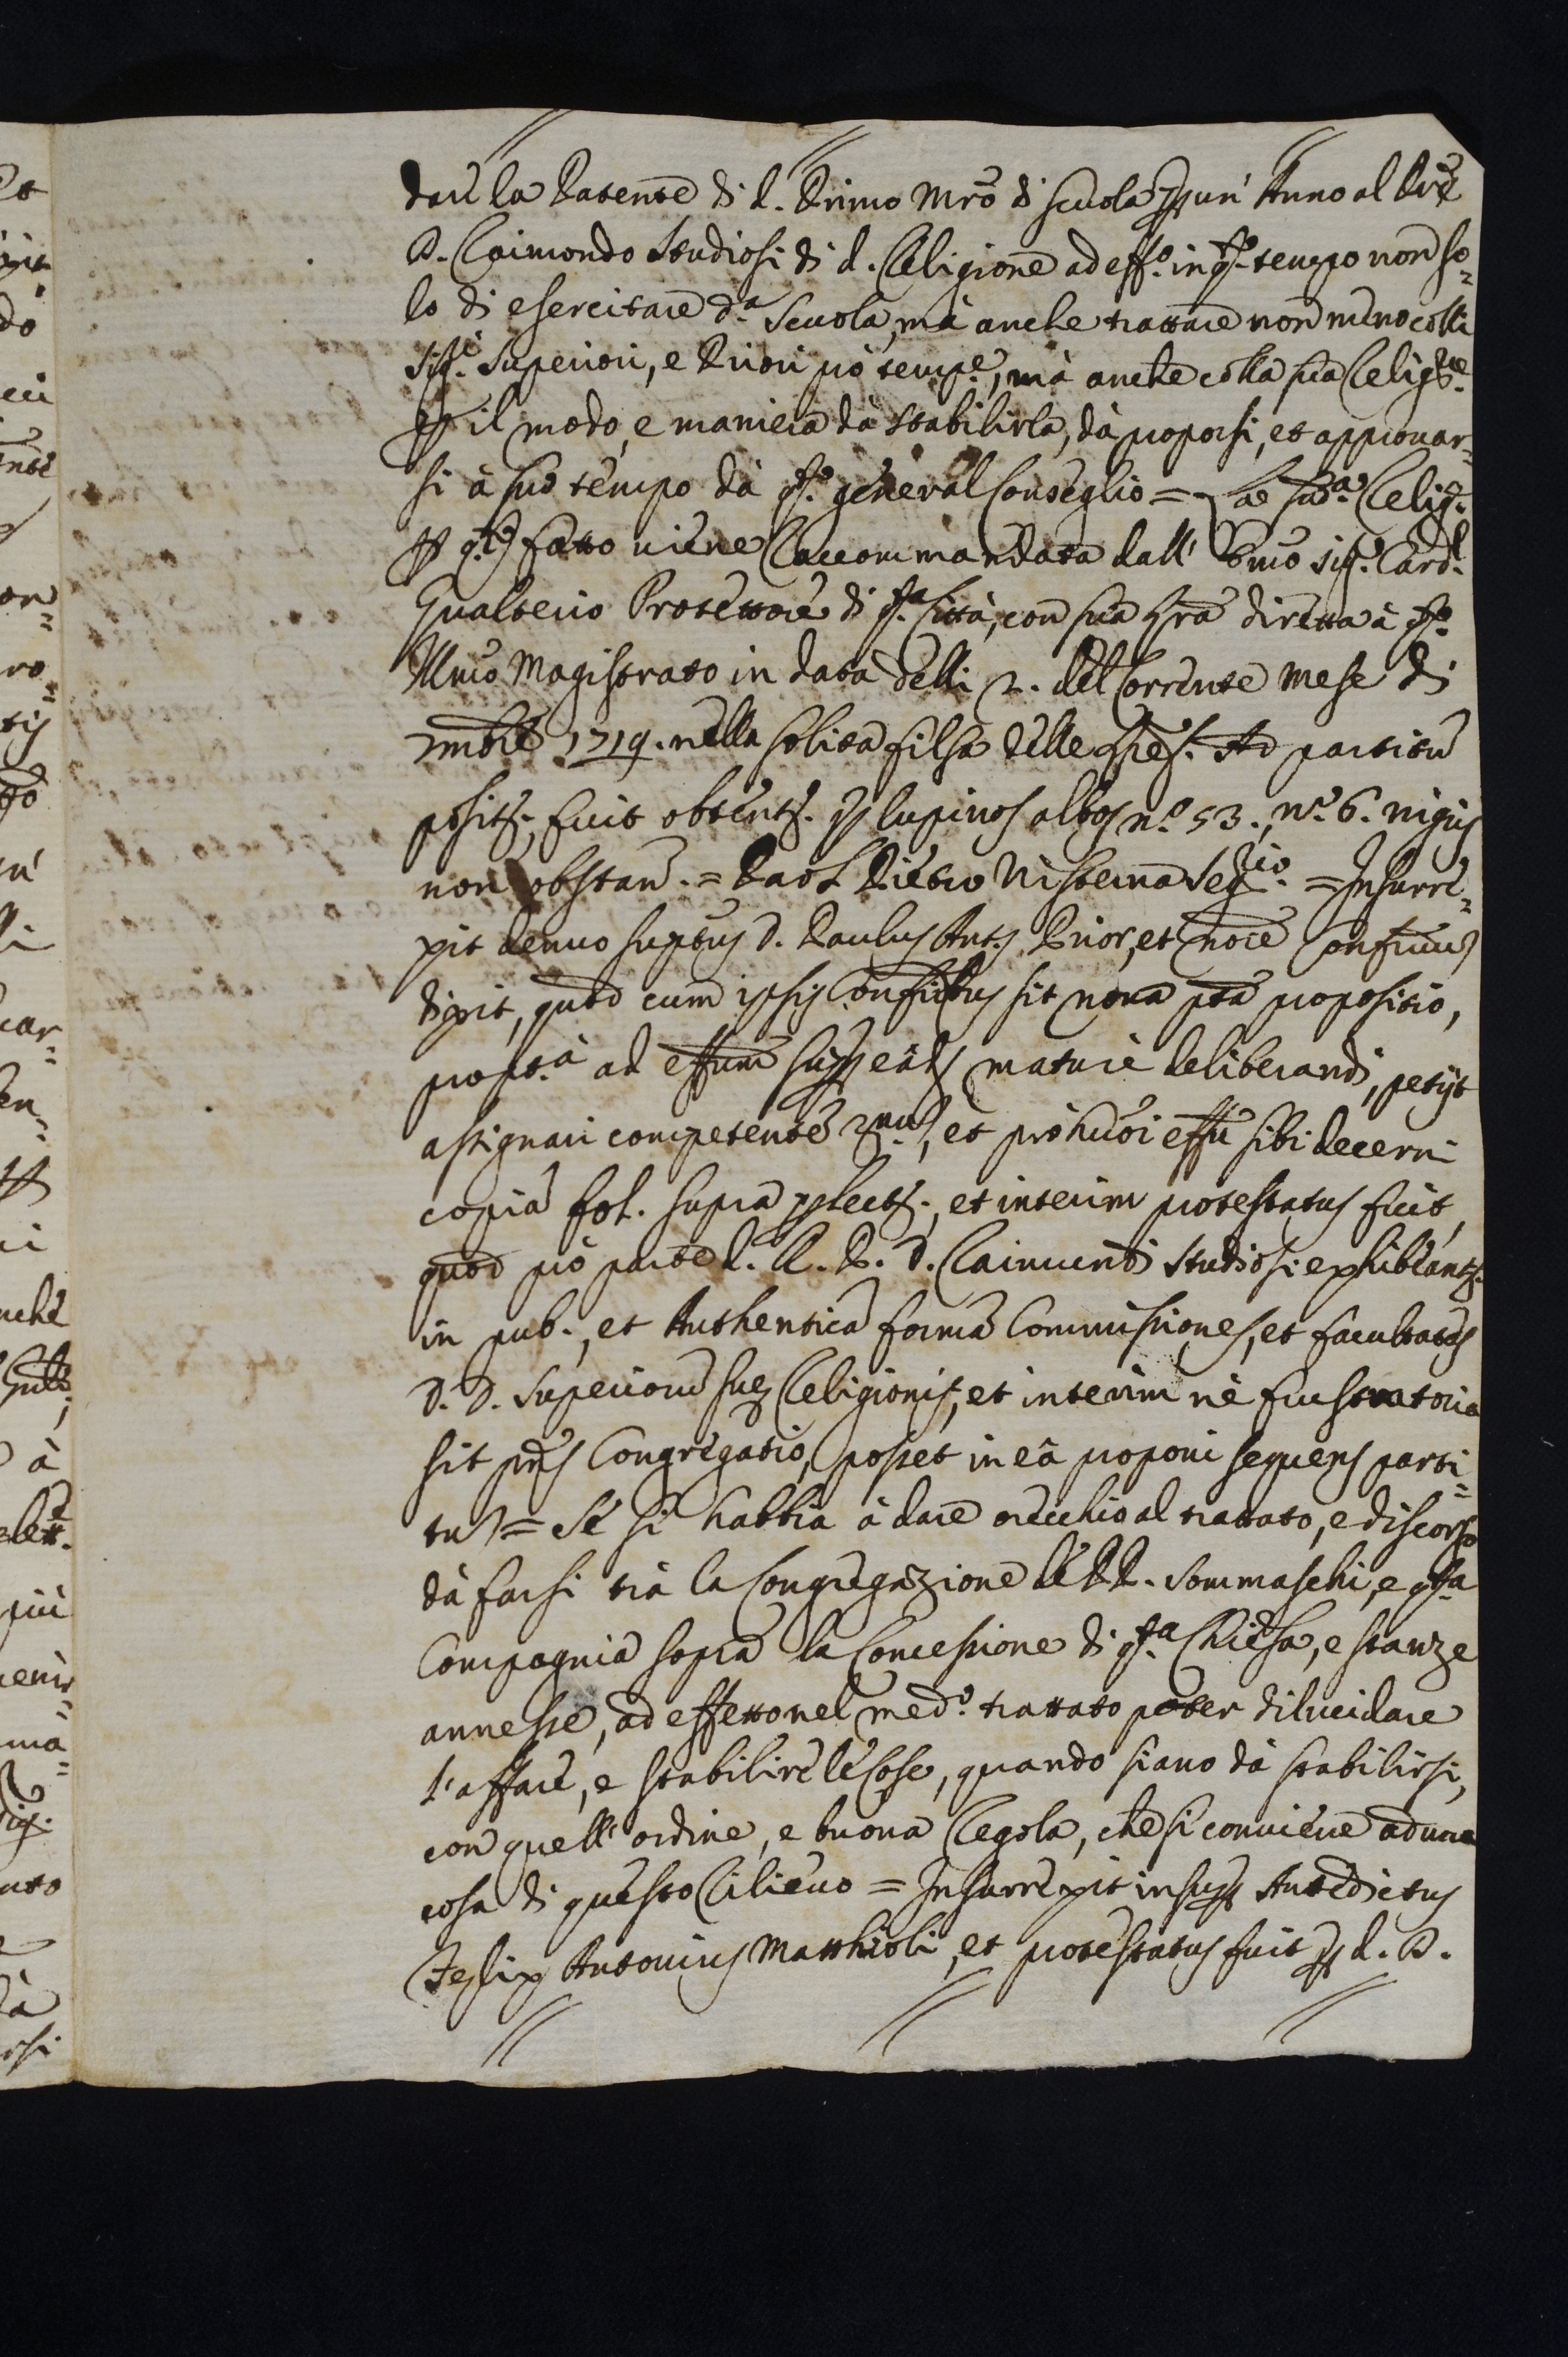 dare la Patente di d. Primo Mrō di scuola p un' Anno al Pre
D. Raimondo Studiosi di d. Religione ad eff.o in q.to tempo non so=
lo di esercitare d.a Scuola, mà anche trattare non meno colli
Sig.i Superiori, e Priori prò temp.e, mà anche colla sua Relig.ne
p il modo, e maniera dà stabilirla, dà proporsi, et approvar=
si à suo tempo dà q.to general Conseglio = La sud.a Relig.e
p q.to fatto viene Raccommandata dall' Emo Sig.r Card.l
Gualterio Protettore di q.ta Città, con sua lrā diretta à q.to
Illmo Magistrato in data delli 2. del Corrente Mese di
Xmbre 1719. nella solita filsa delle lre. Ad partitū
posit., fuit obtent. p lupinos albos n.o 53., n.o 6. nigris
non obstan. = Paol Pietro Visterina Seg.rio = Insurre=
xit denuo suptus D. Paulus Ant. Prior, et noīe Confrum
dixit, quod cum ipsis Confribus sit nova pta propositio,
propt.a ad effum sup eâd. maturè deliberandi, petijt
assignari competentē mum, et prò huōi effū sibi decerni
copiā fol. supra plect., et interim protestatus fuit,
quod prò parte d. R. P. D. Raimundi Studiosi exhibeant.
in pub., et Authentica forma Commissiones, et facultates
D. D. Superiorū suę Religionis, et interim nè frustratoria
sit pns Congregatio, posset in eâ proponi sequens parti=
tum = Se si habbia à dare orecchio al trattato, e discorso
dà farsi trà la Congregazione de PP. Sommaschi, e q.ta
Compagnia sopra la Concessione di q.ta Chiesa, e stanze
annesse, ad effetto nel med.o trattato poter dilucidare
l'affare, e stabilire le cose, quando siano dà stabilirsi,
con quell' ordine, e buona Regola, che si conviene ad una
cosa di questo Rilievo = Insurrexit insup Antedictus
Felix Antonius Matthioli, et protestatus fuit p d. D.